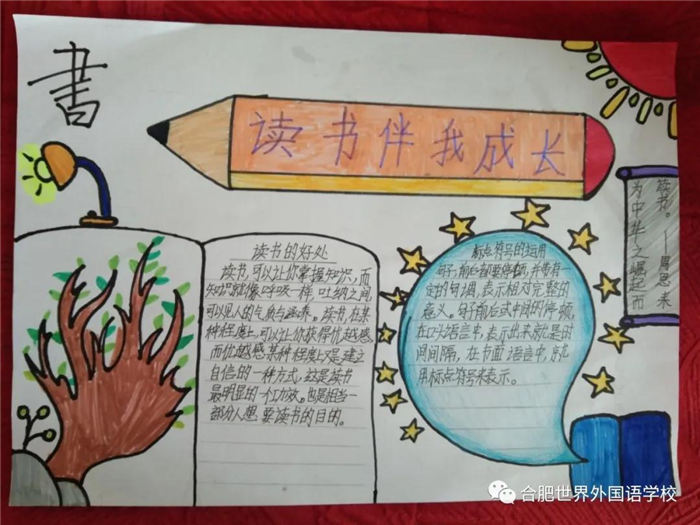 書
读书伴我成长
为中华之崛起而
读书。——周恩来
读书的好处
读书,可以让你掌握知识,而
知识就像呼吸一样,吐纳之间,
可以见人的气质与涵养。读书,在某
种程度上,可以让你获得优越感,
而优越感某种程度上又是建立
自信的一种方式,这是读书
最明显的一个功效。也是相当一
部分人想要读书的目的。
标点符号的运用
句子,前后都要停顿,并带有一
定的句调,表示相对完整的
意义。句子前后或中间的停顿,
在口头语言中,表示出来就是时
间间隔,在书面语言中,就
用标点符号来表示。
合肥世界外国语学校